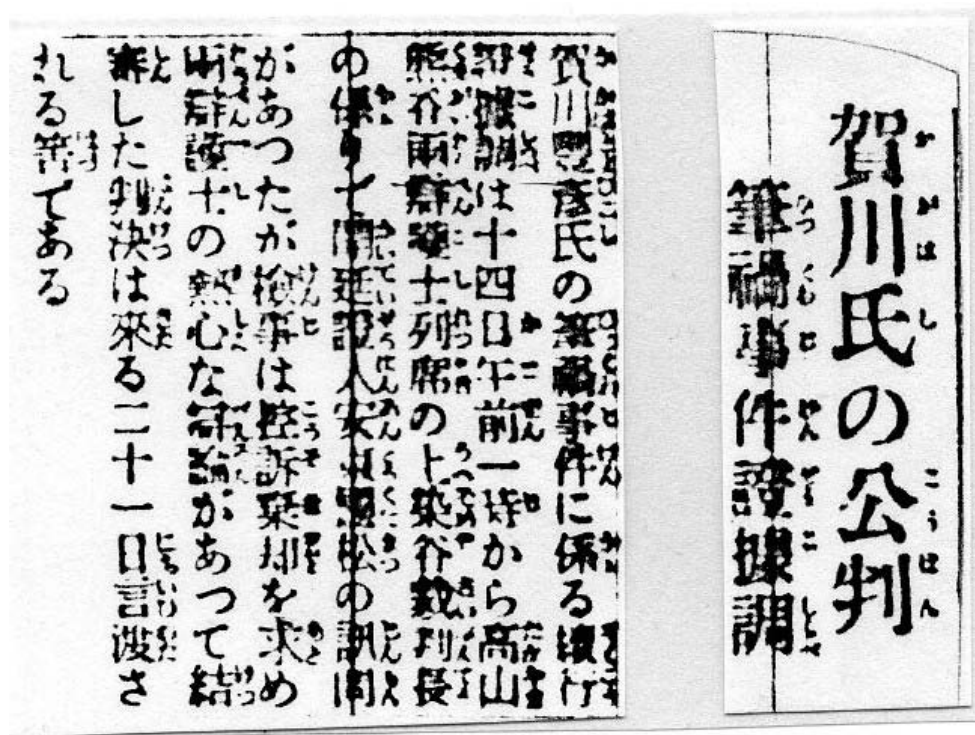 賀川氏の公判
筆禍事件證據調
賀川豐彦氏の筆禍事件に係る續行
證據調は十四日午前一時から高山
熊谷兩辯護士列席の上染谷裁判長
の係りで開廷證人安東國松の訊問
があつたが檢事は控訴棄却を求め
兩辯護士の熱心な辯論があつて結
審した判決は來る二十一日言渡さ
れる筈である